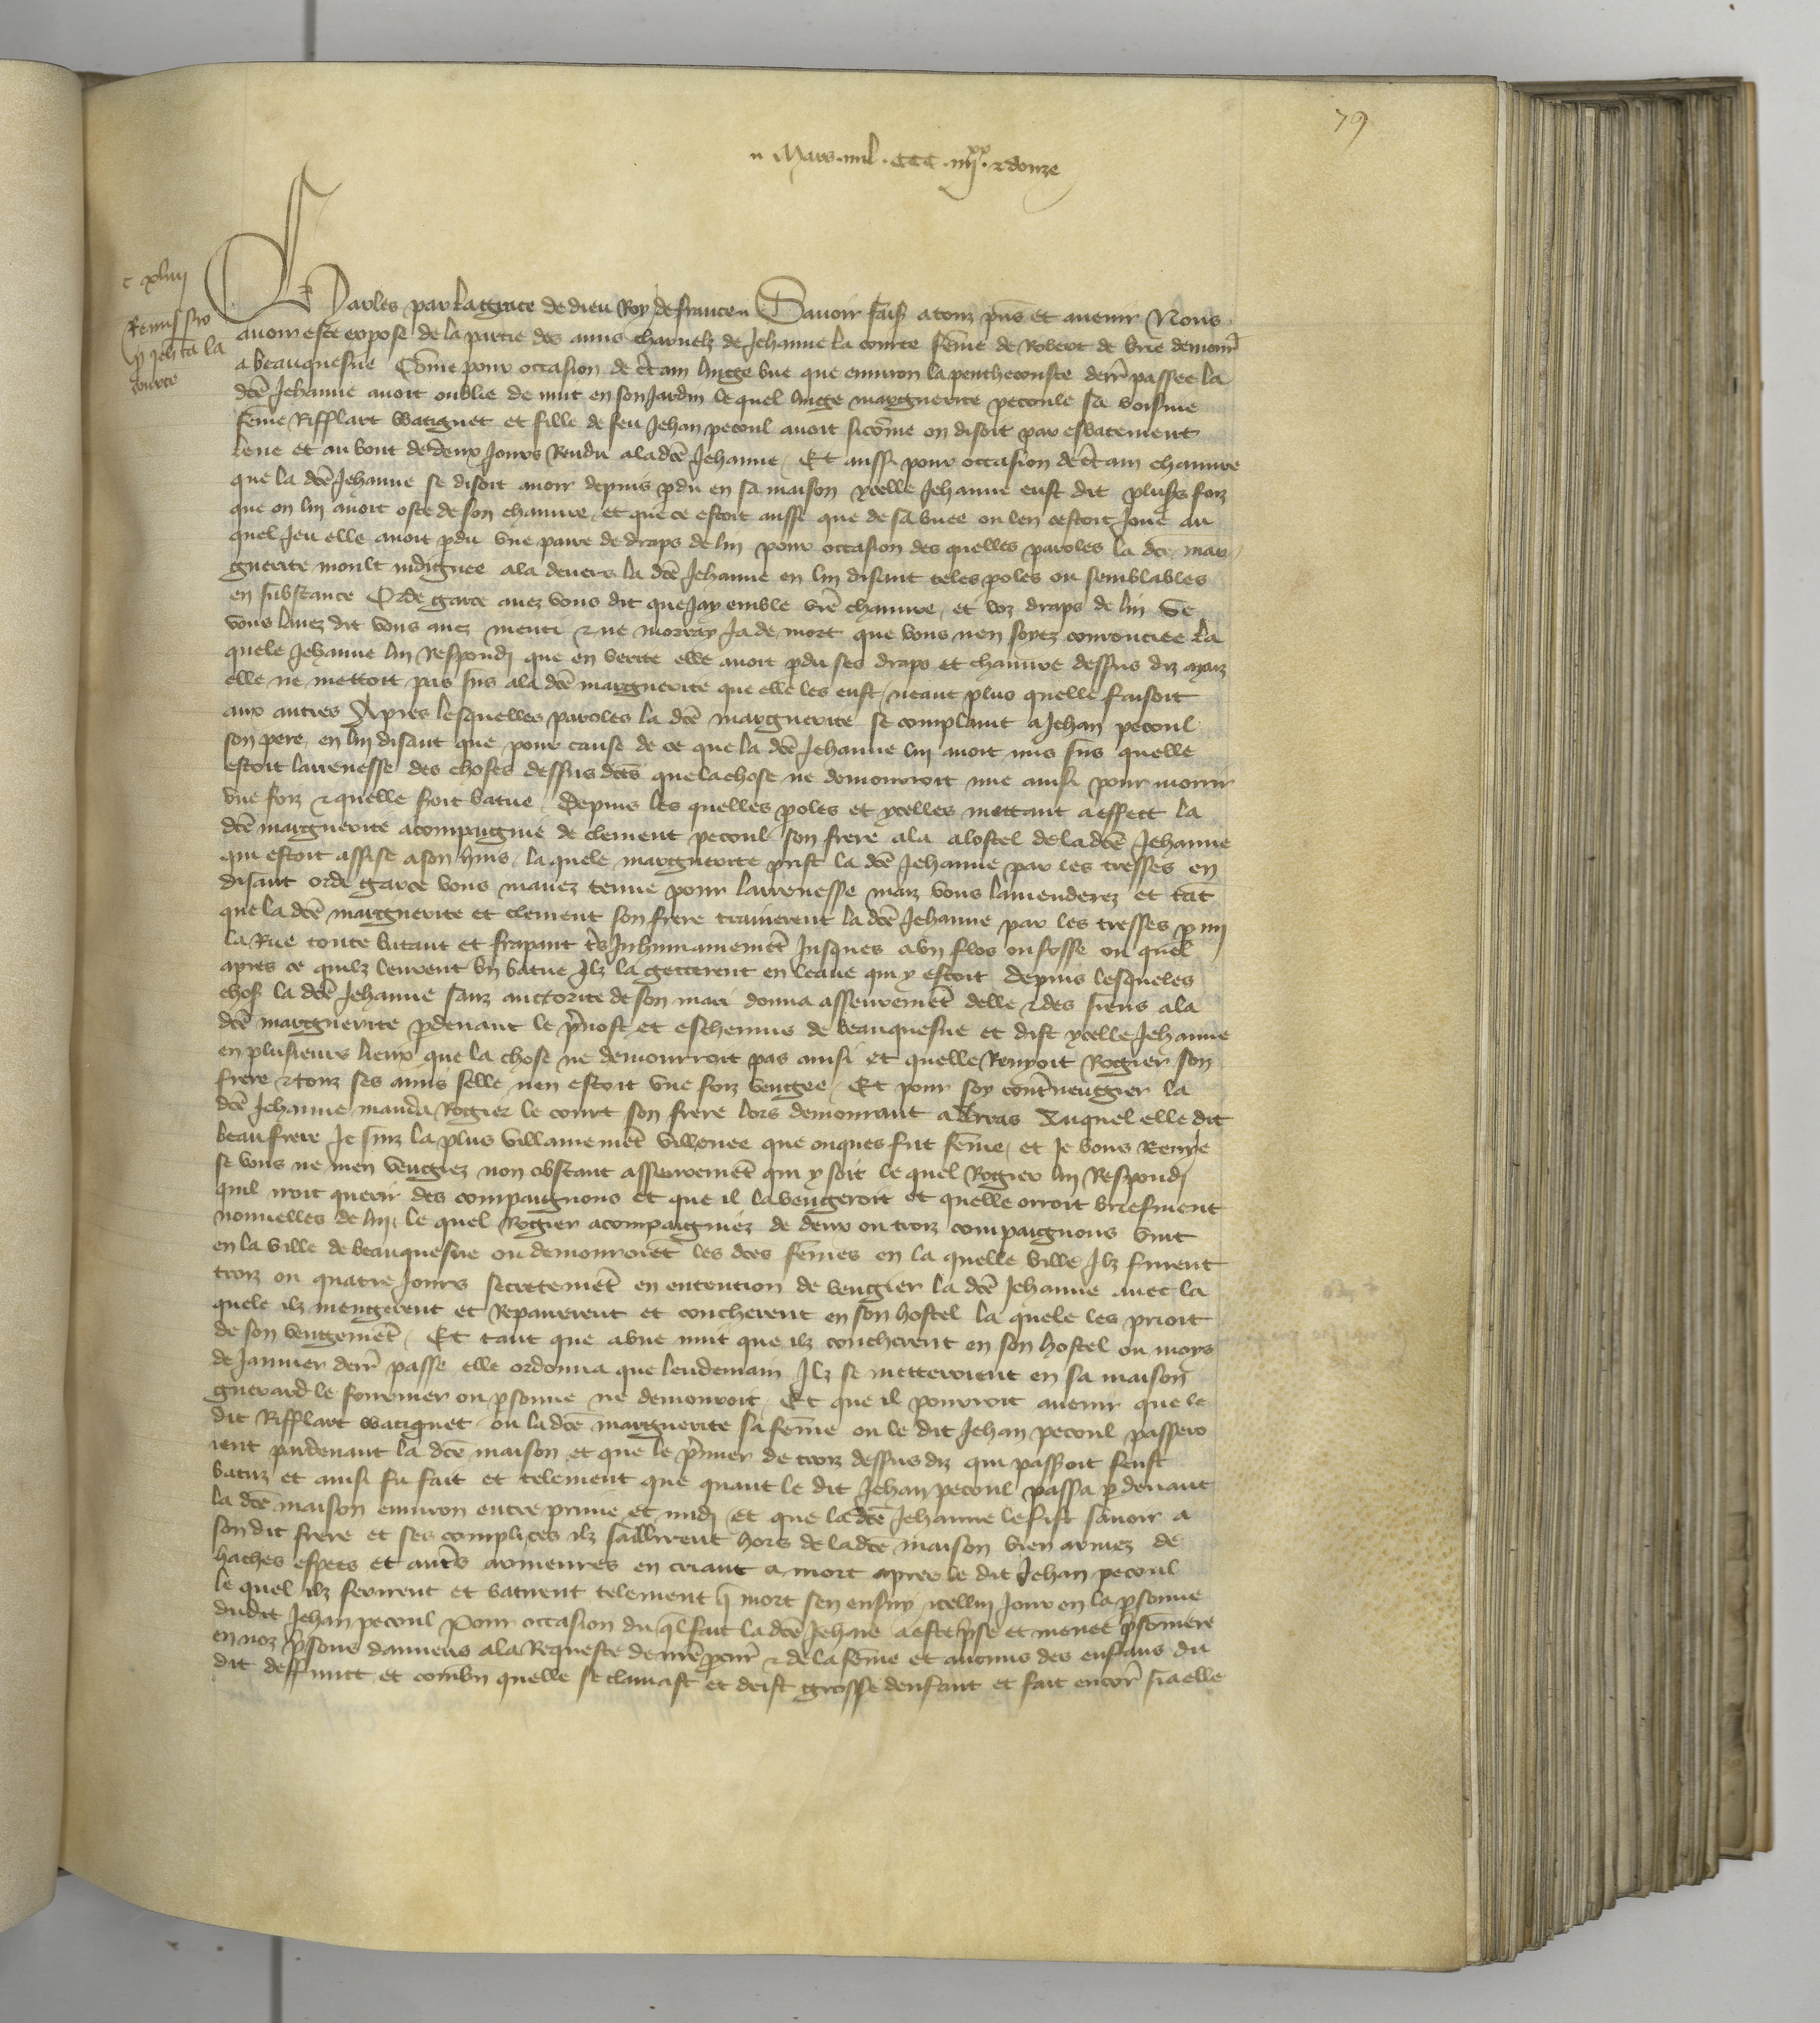 79
n Mars mil CCC iiijxx et douze
C xliiij
Remissio
p Jehanna la
courte
Charles par la grace de dieu Roy de france Savoir faisons a touz pns et avenir Nous
avoir este expose de la partie des amis charnelz de Jehanne la courte feme de Robert de brie demour
a beauquesne Come pour occasion de ctain linge bue que environ la penthecouste derr passee la
dce Jehanne avoit oublie de nuit en son Jardin le quel linge marguerite pecoule sa voisine
feme Rifflart watiguet et fille de feu Jehan pecoul avoit sicome on disoit par esbatement
leve et au bout de deux Jours Rendu a la dce Jehanne Et aussi pour occasion de ctain chanvre
que la dce Jehanne se disoit avoir depuis pdu en sa maison ycelle Jehanne eust dit plusrs foiz
que on lui avoit oste de son chanvre et que ce estoit aussi que de sa buee ou len cestoit Joue au
quel Jeu elle avoit pdu une paire de draps de lin pour occasion des quelles paroles la dce mar
guerite moult indignee ala devers la dce Jehanne en lui disant teles poles ou semblables
en substance Orde garce avez vous dit que Jay emble vre chanvre et voz draps de lin Se
vous lavez dit vous avez menti et ne morray Ja de mort que vous nen soyez couroucee la
quele Jehanne lui Respondj que en verite elle avoit pdu ses draps et chanvre dessus diz maiz
elle ne mettoit pas sus a la dce marguerite que elle les eust neant plus quelle faisoit
aux autres Apres lesquelles paroles la dce marguerite se complaint a Jehan pecoul
son pere en lui disant que pour cause de ce que la dce Jehanne lui avoit mis sus quelle
estoit larrenesse des choses dessus dces que la chose ne demourroit mie ainsi pour morir
une foiz et quelle soit batue Depuis les quelles poles et ycelles mettant a effect la
dce marguerite acompaignie de clement pecoul son frere ala a lostel de la dce Jehanne
qui estoit assise a son huis la quele marguerite prist la dce Jehanne par les tresses en
disant orde garce vous mavez tenue pour larrenesse maiz vous lamenderez et tat
que la dce marguerite et clement son frere trainerent la dce Jehanne par les tresses p mi
la Rue toute batant et frapant tres Inhumainement Jusques a un flos ou fosse ou quel
apres ce quilz leurent bn batue Ilz la getterent en leaue qui y estoit depuis lesqueles
chos la dce Jehanne sanz auctorite de son mari donna asseuremet delle et des siens a la
dce marguerite pdevant le prevost et eschevins de beauquesne et dist ycelle Jehanne
en plusieurs lieux que la chose ne demourroit pas ainsi et quelle Renyoit Rogier son
frere et touz ses amis selle nen estoit une foiz vengee Et pour soy contrevengier la
dce Jehanne manda Rogier le court son frere lors demourant a Arras Auquel elle dit
beau frere Je suiz la plus villainemet villenee que onques fut feme et Je vous Renye
se vous ne men vengiez non obstant asseuremet qui y soit le quel Rogier lui Respondj
quil iroit querir des compaignons et que il la vengeroit et quelle orroit briefment
nouvelles de lui le quel Rogier acompaigniez de deux ou troiz compaignons vint
en la ville de beauquesne ou demouroiet les dces femes en la quelle ville Ilz furent
troiz ou quatre Jours secretemet en entention de vengier la dce Jehanne avec la
quele ilz mengerent et Repairerent et coucherent en son hostel la quele les prioit
de son vengemet Et tant que a une nuit que ilz coucherent en son hostel ou moys
de Janvier derr passe elle ordonna que lendemain Ilz se metteroient en sa maison
guerard le fournier ou psonne ne demouroit Et que il pourroit avenir que le
dit Rifflart watiguet ou la dce marguerite sa feme ou le dit Jehan pecoul passero
ient pardevant la dce maison et que le pmier de troiz dessus diz qui passoit feust
batuz et ainsi fu fait et telement que quant le dit Jehan pecoul passa p devant
la dce maison environ entre prime et midj Et que la dce Jehanne le fist savoir a
son dit frere et ses complices ilz saillirent hors de la dce maison bien armez de
haches espees et autres armeures en criant a mort apres le dit Jehan pecoul
le quel ilz ferirent et batirent telement q mort sen ensuy icellui Jour en la psonne
dudit Jehan pecoul Pour occasion du ql fait la dce Jehane a este prise et menee prisoniere
en noz prisons damiens a la Requeste de nre pcour et de la feme et aucuns des enfans du
dit deffunct et combn quelle se clamast et deist grosse denfant et fait encor sia elle